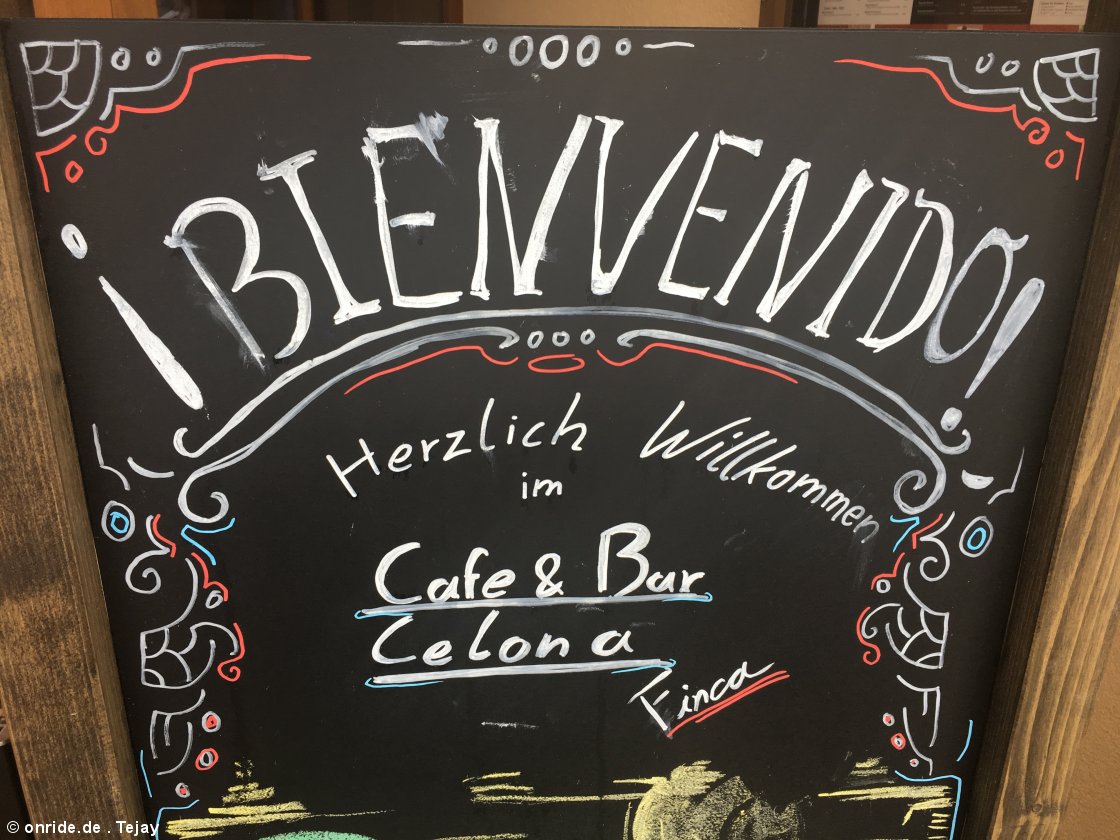 ¡BIENVENIDO!
Herzlich Willkommen
im
Cafe & Bar
Celona
Finca
© onride.de . Tejay